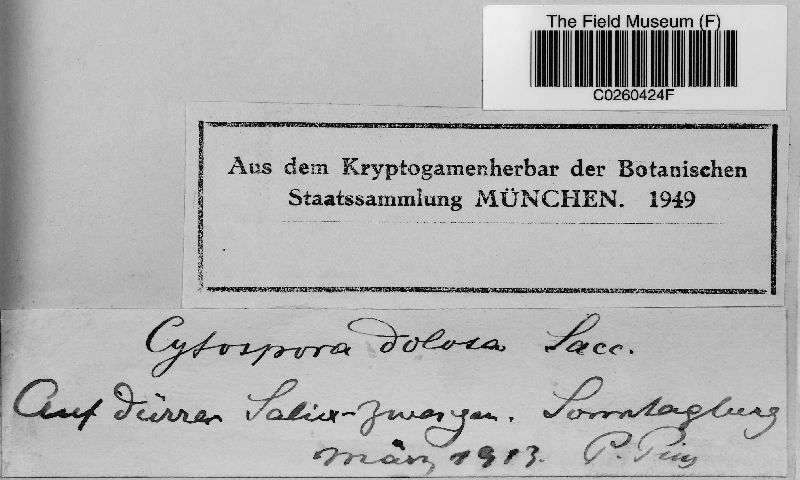 The Field Museum (F)
C0260424F
Aus dem Kryptogamenherbar der Botanischen
Staatssammlung MÜNCHEN. 1949
Cytospora dolosa Sacc.
Auf dürren Salix-Zweigen. Sonntagberg
März 1913. P. Pius